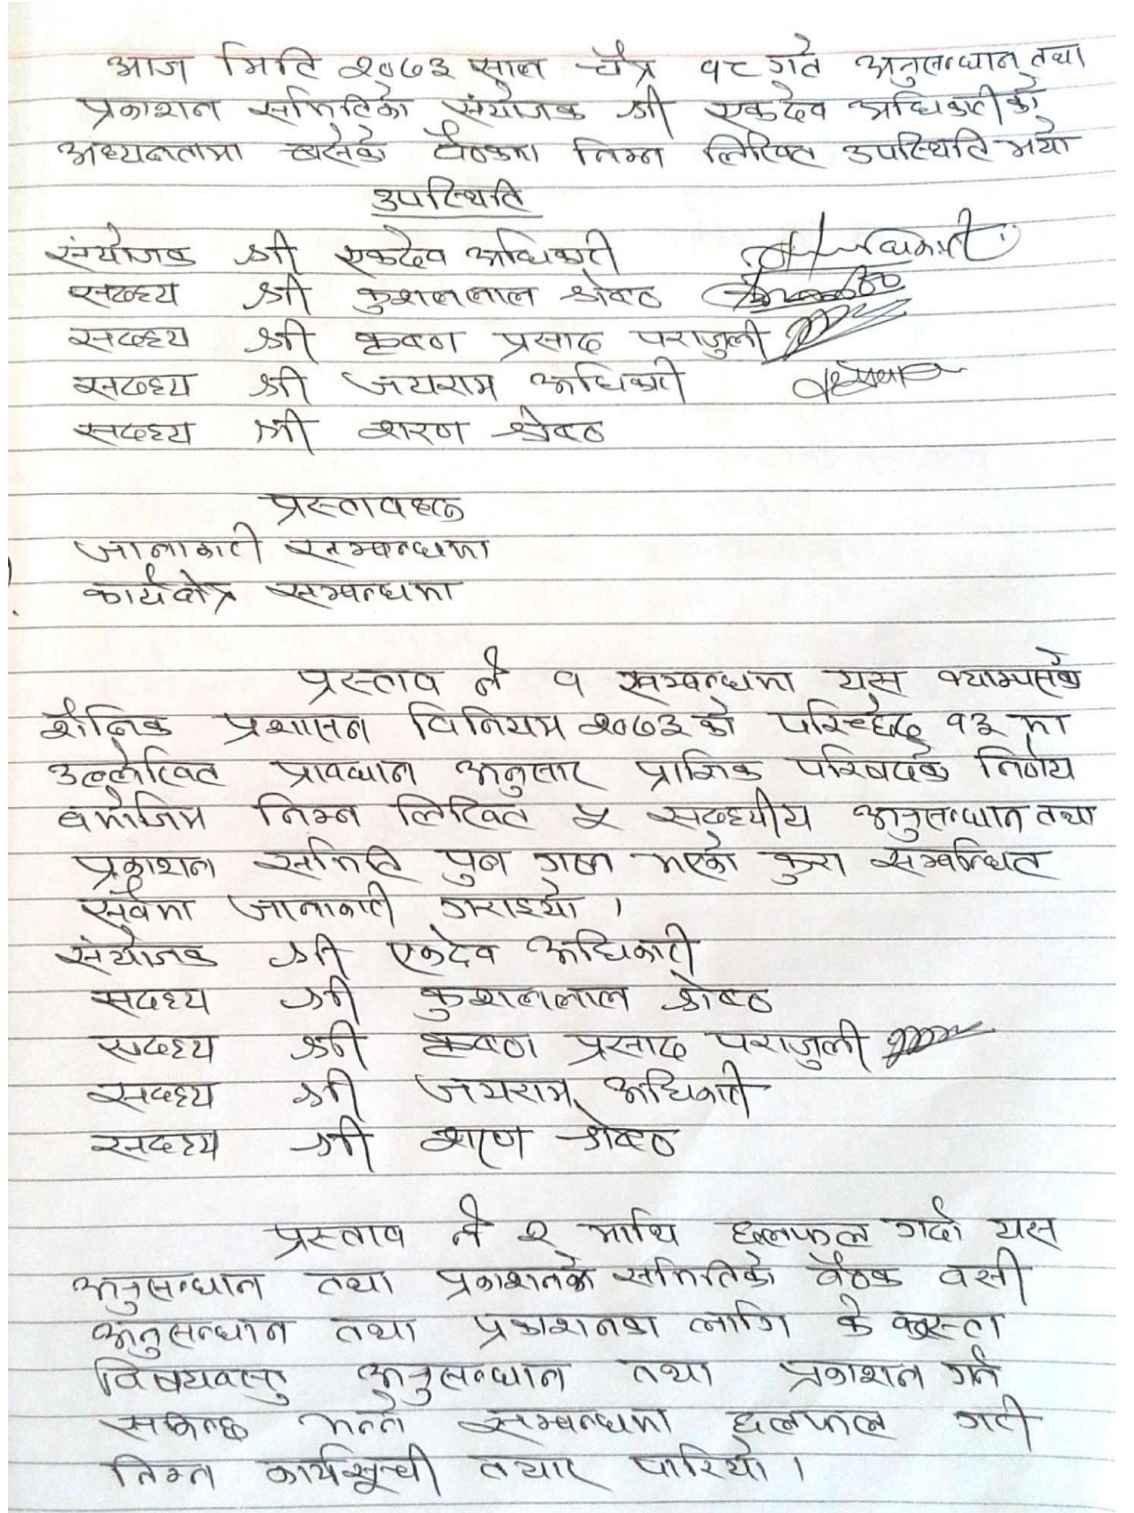 आज मिति २०७३ साल चैत्र १८ गते अनुसन्धान तथा
प्रकाशन समितिको संयोजक श्री एकदेव अधिकारीको
अध्यक्षतामा बसेको बैठकमा निम्न लिखित उपस्थिति भयो
उपस्थिति
संयोजक श्री एकदेव अधिकारी
सदस्य श्री कुशललाल श्रेष्ठ
सदस्य श्री कृष्ण प्रसाद पराजुली
सदस्य श्री जयराम अधिकारी
सदस्य श्री शरण श्रेष्ठ
प्रस्तावहरु
जानाकारी सम्बन्धमा
कार्यक्षेत्र सम्बन्धमा
प्रस्ताव नं १ सम्बन्धमा यस क्याम्पसको
शैक्षिक प्रशासन विनियम २०७३ को परिच्छेद १३ मा
उल्लेखित प्रावधान अनुसार प्राज्ञिक परिषदको निर्णय
बमोजिम निम्न लिखित ५ सदस्यीय अनुसन्धान तथा
प्रकाशन समिति पुन गठन भएको कुरा सम्बन्धित
सबैमा जानाकारी गराइयो ।
संयोजक श्री एकदेव अधिकारी
सदस्य श्री कुशललाल श्रेष्ठ
सदस्य श्री कृष्ण प्रसाद पराजुली
सदस्य श्री जयराम अधिकारी
सदस्य श्री शरण श्रेष्ठ
प्रस्ताव नं २ माथि छलफल गर्दा यस
अनुसन्धान तथा प्रकाशनको समितिको बैठक बसी
अनुसन्धान तथा प्रकाशनका लागि के कस्ता
विषयवस्तु अनुसन्धान तथा प्रकाशन गर्न
सकिन्छ भन्ने सम्बन्धमा छलफल गरी
निम्न कार्यसूची तयार पारियो ।